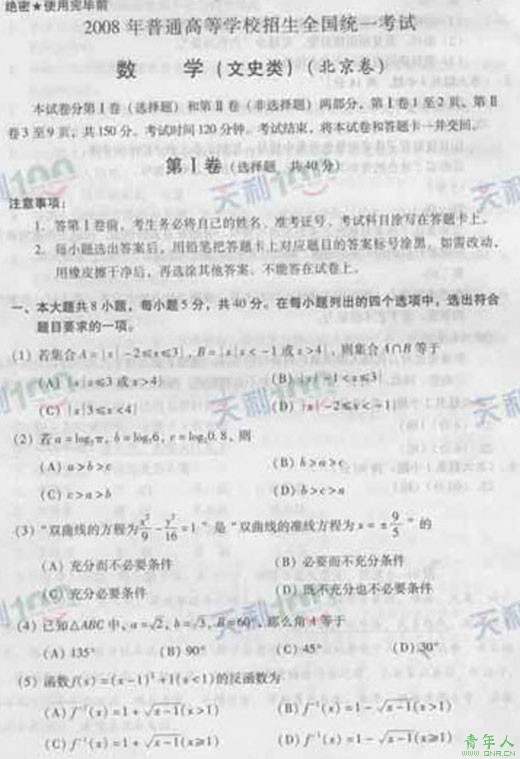 绝密★使用完毕前
2008年普通高等学校招生全国统一考试
数 学(文史类)(北京卷)
本试卷分第Ⅰ卷(选择题)和第Ⅱ卷(非选择题)两部分,第Ⅰ卷1至2页,第Ⅱ
卷3至9页,共150分。考试时间120分钟。考试结束,将本试卷和答题卡一并交回。
第Ⅰ卷(选择题 共40分)
注意事项:
1. 答第Ⅰ卷前,考生务必将自己的姓名、准考证号、考试科目涂写在答题卡上。
2. 每小题选出答案后,用铅笔把答题卡上对应题目的答案标号涂黑。如需改动,
用橡皮擦干净后,再选涂其他答案。不能答在试卷上。
一、本大题共8小题,每小题5分,共40分。在每小题列出的四个选项中,选出符合
题目要求的一项。
(1) 若集合A={x|-2≤x≤3},B={x|x<-1或x>4},则集合A∩B等于
(A) {x|x≤3或x>4} (B) {x|-1<x≤3}
(C) {x|3≤x<4} (D) {x|-2≤x<-1}
(2) 若a=log₃π,b=log₇6,c=log₂0.8,则
(A) a>b>c (B) b>a>c
(C) c>a>b (D) b>c>a
(3) "双曲线的方程为x²/9-y²/16=1"是"双曲线的准线方程为x=±9/5"的
(A) 充分而不必要条件 (B) 必要而不充分条件
(C) 充分必要条件 (D) 既不充分也不必要条件
(4) 已知△ABC中,a=√2,b=√3,B=60°,那么角A等于
(A) 135° (B) 90° (C) 45° (D) 30°
(5) 函数f(x)=(x-1)²+1(x<1)的反函数为
(A) f⁻¹(x)=1+√x-1(x>1) (B) f⁻¹(x)=1-√x-1(x>1)
(C) f⁻¹(x)=1+√x-1(x≥1) (D) f⁻¹(x)=1-√x-1(x≥1)
天利100
青年人
WWW.QNR.CN